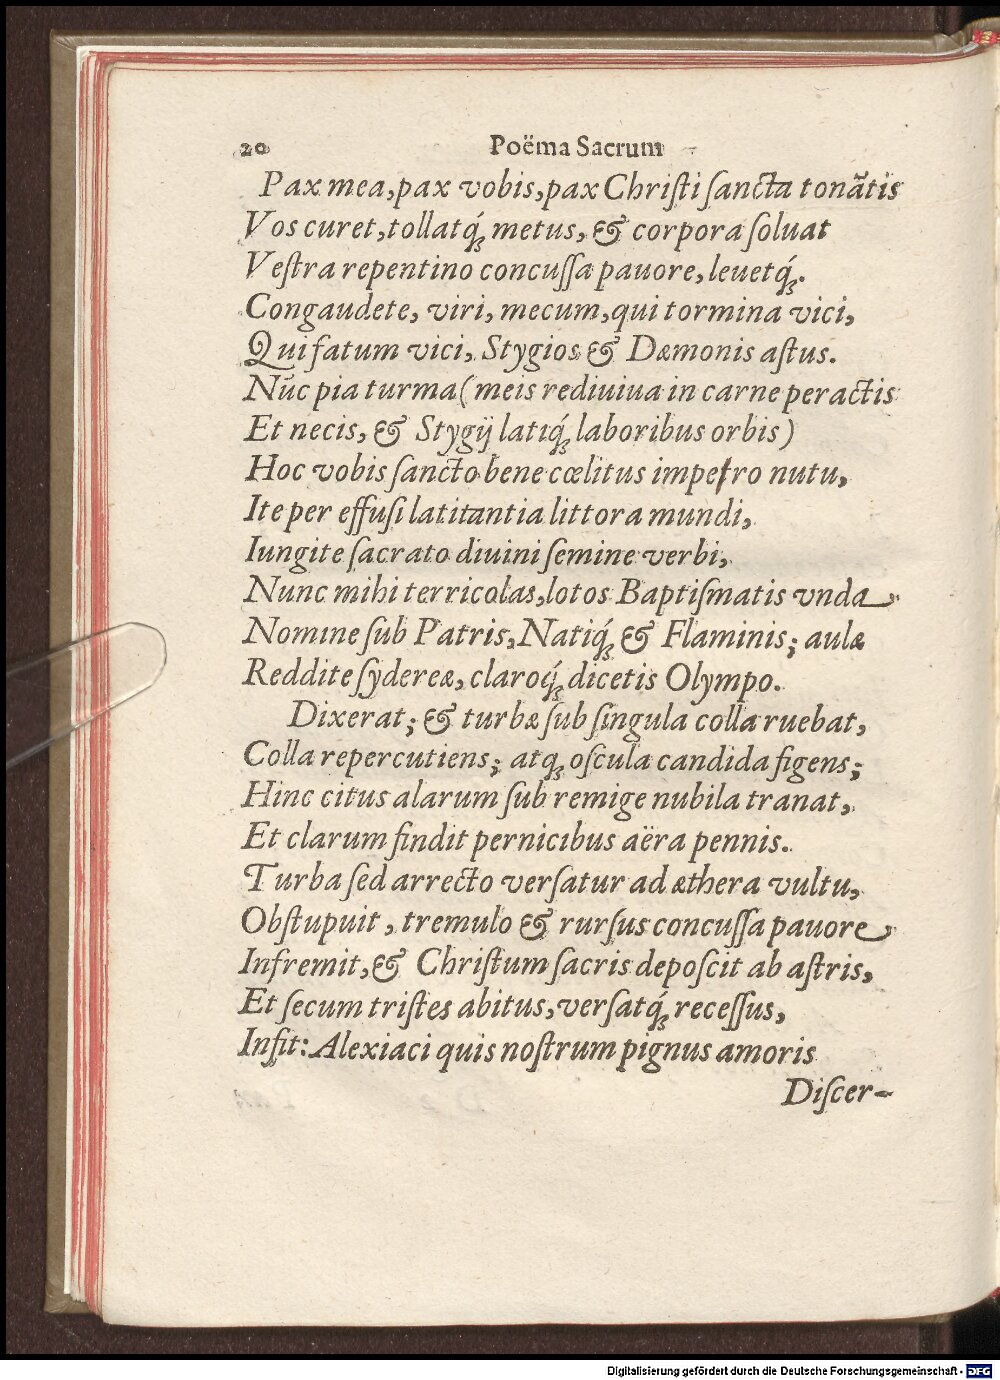 20 Poëma Sacrum
Pax mea, pax vobis, pax Chriſti ſancta tonãtis
Vos curet, tollatq́; metus, & corpora ſoluat
Veſtra repentino concuſſa pauore, leuetq́;.
Congaudete, viri, mecum, qui tormina vici,
Qui fatum vici, Stygios & Dæmonis aſtus.
Nũc pia turma (meis rediuiua in carne peractis
Et necis, & Stygij latiq́; laboribus orbis)
Hoc vobis ſancto bene cœlitus impetro nutu,
Ite per effuſi latitantia littora mundi,
Iungite ſacrato diuini ſemine verbi,
Nunc mihi terricolas, lotos Baptiſmatis vnda
Nomine ſub Patris, Natiq́; & Flaminis; aulæ
Reddite ſydereæ, claroq́; dicetis Olympo.
Dixerat; & turbæ ſub ſingula colla ruebat,
Colla repercutiens; atq; oſcula candida figens;
Hinc citus alarum ſub remige nubila tranat,
Et clarum findit pernicibus aëra pennis.
Turba ſed arrecto verſatur ad æthera vultu,
Obſtupuit, tremulo & rurſus concuſſa pauore
Infremit, & Chriſtum ſacris depoſcit ab aſtris,
Et ſecum triſtes abitus, verſatq́; receſſus,
Infit: Alexiaci quis noſtrum pignus amoris
Diſcer-
Digitalisierung gefördert durch die Deutsche Forschungsgemeinschaft - DFG